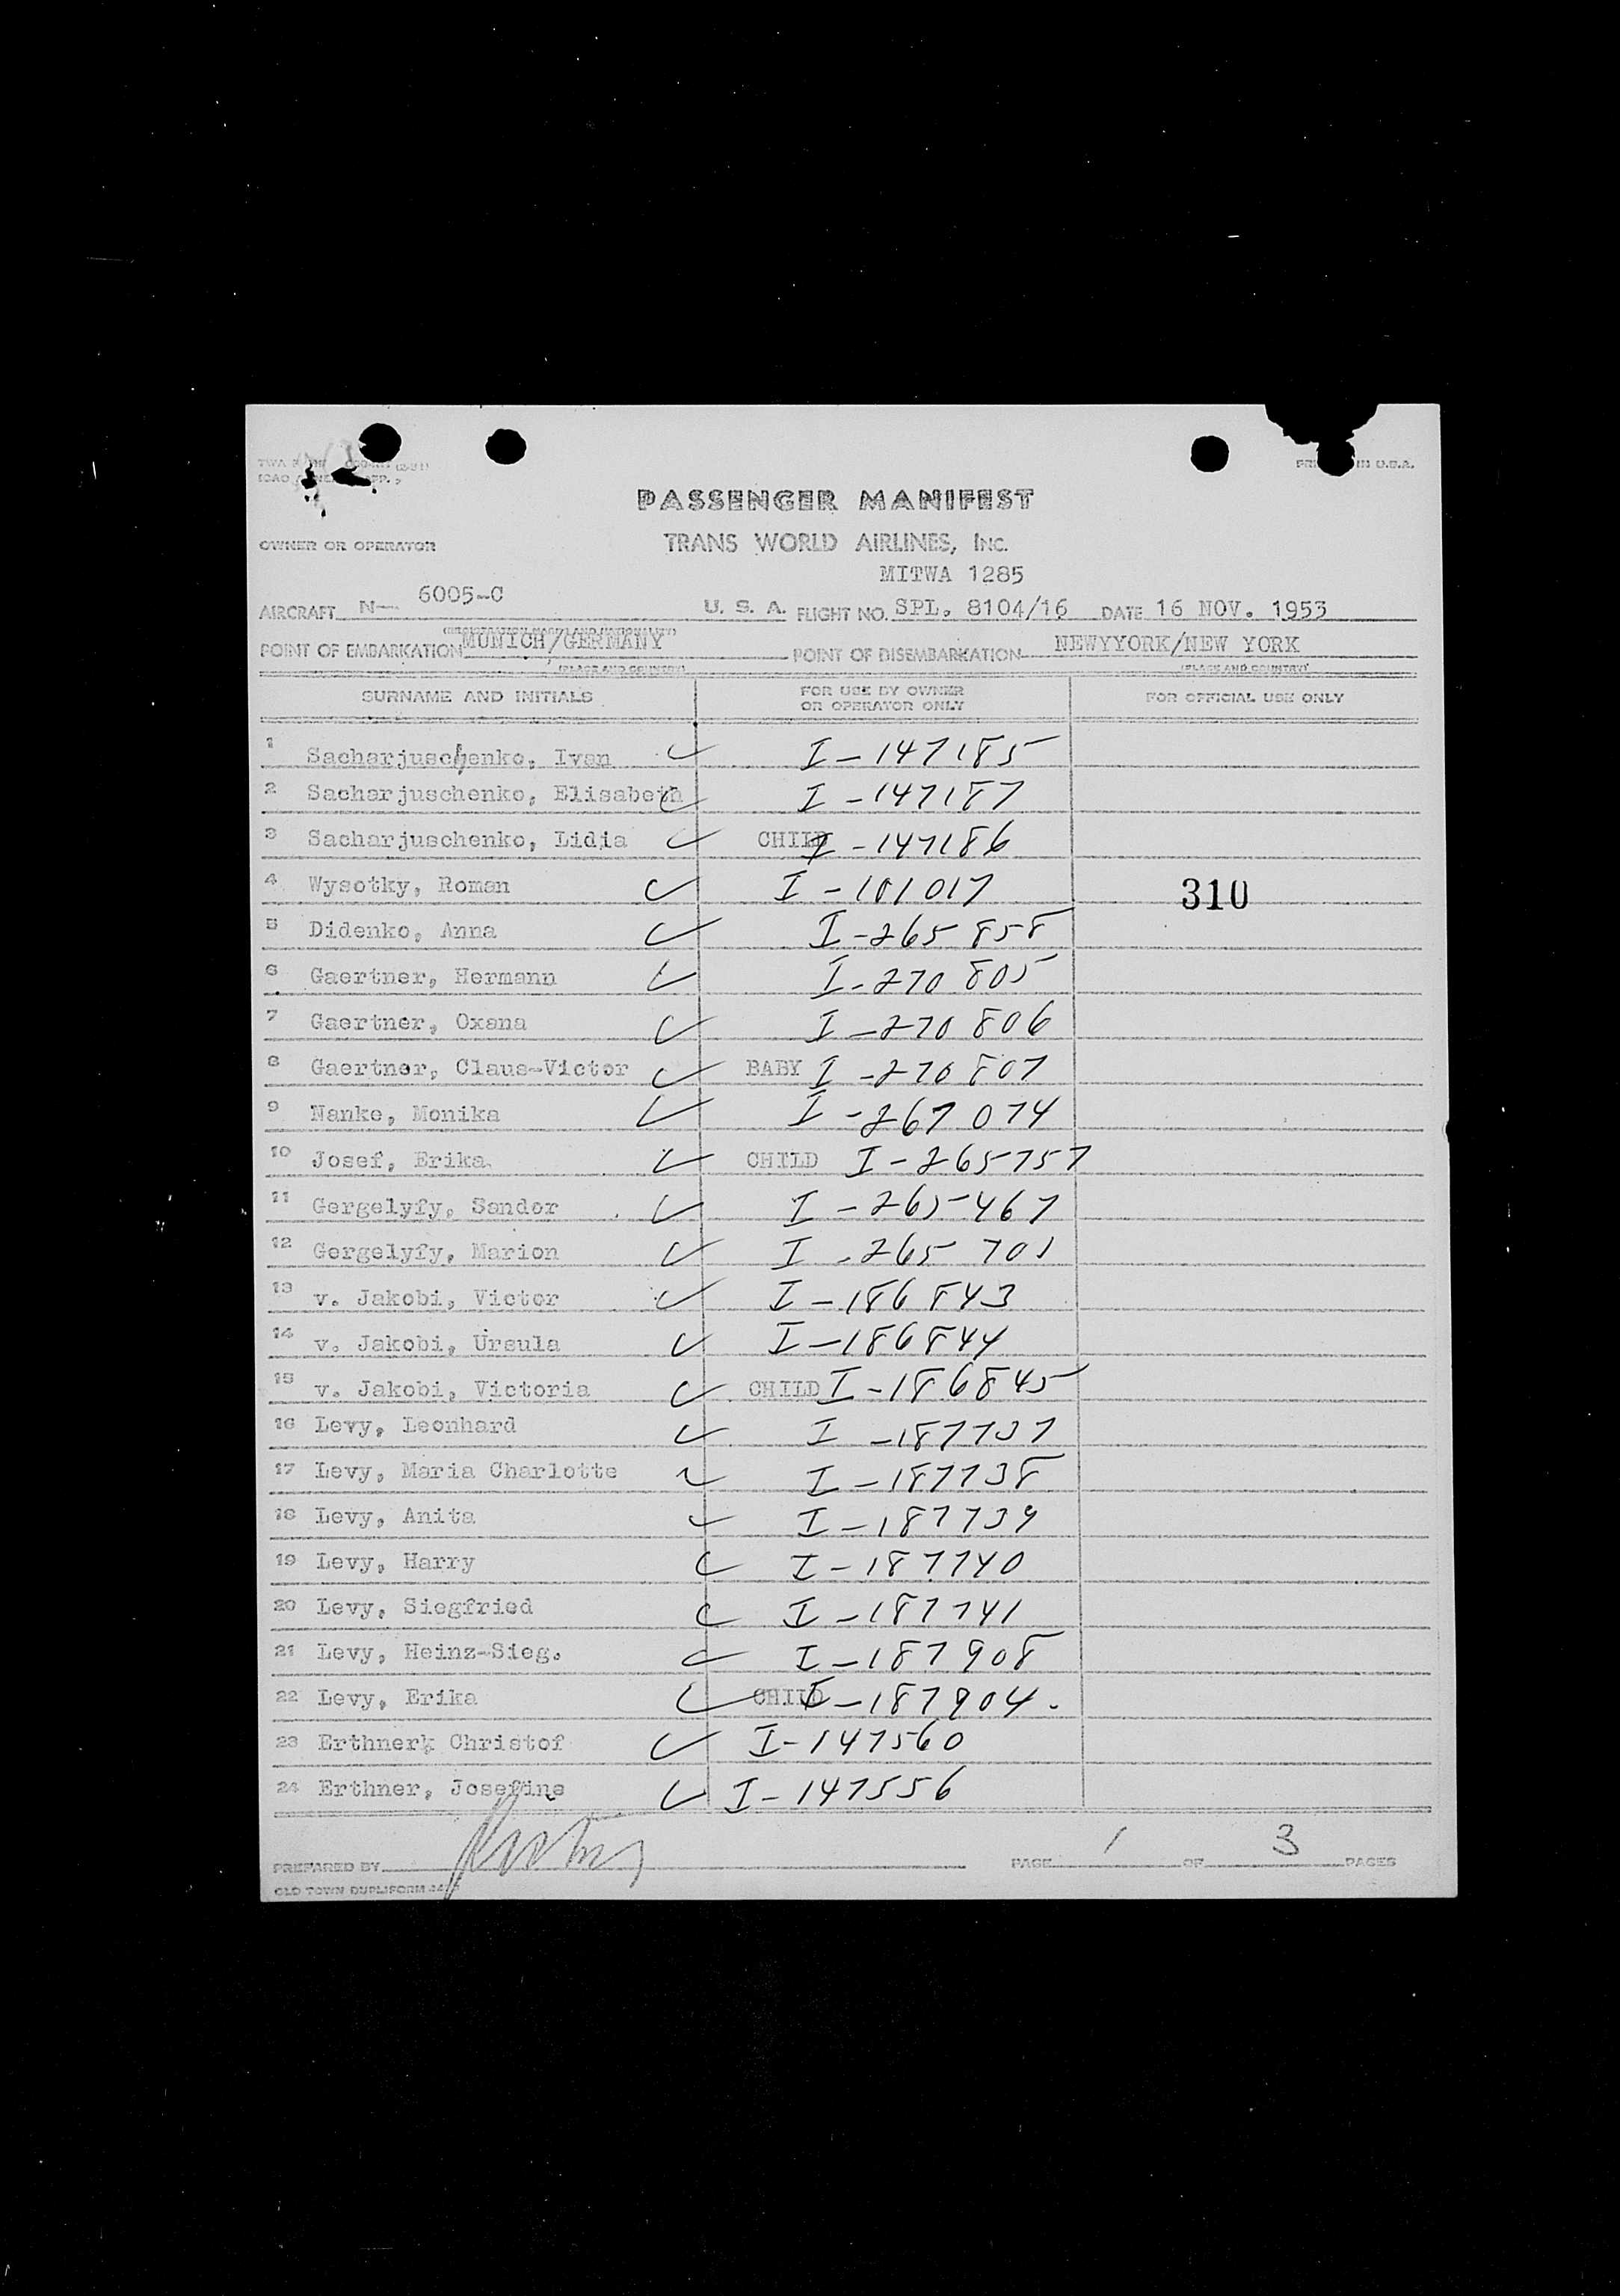 PRINTED IN U.S.A.
PASSENGER MANIFEST
OWNER OR OPERATOR TRANS WORLD AIRLINES, INC.
MITWA 1285
AIRCRAFT N- 6005-C U. S. A. FLIGHT NO. SPL. 8104/16 DATE 16 NOV. 1953
POINT OF EMBARKATION MUNICH/GERMANY POINT OF DISEMBARKATION NEWYYORK/NEW YORK
(PLACE AND COUNTRY) (PLACE AND COUNTRY)
SURNAME AND INITIALS FOR USE BY OWNER OR OPERATOR ONLY FOR OFFICIAL USE ONLY
1 Sacharjuschenko, Ivan I-147185
2 Sacharjuschenko, Elisabeth I-147187
3 Sacharjuschenko, Lidia CHILD I-147186
4 Wysotky, Roman I-101017 310
5 Didenko, Anna I-265858
6 Gaertner, Hermann I-270805
7 Gaertner, Oxana I-270806
8 Gaertner, Claus-Victor BABY I-270807
9 Nanke, Monika I-267074
10 Josef, Erika CHILD I-265757
11 Gergelyfy, Sandor I-265467
12 Gergelyfy, Marion I-265701
13 v. Jakobi, Victor I-186843
14 v. Jakobi, Ursula I-186844
15 v. Jakobi, Victoria CHILD I-186845
16 Levy, Leonhard I-187737
17 Levy, Maria Charlotte I-187738
18 Levy, Anita I-187739
19 Levy, Harry I-187740
20 Levy, Siegfried I-187741
21 Levy, Heinz-Sieg. I-187908
22 Levy, Erika CHILD I-187904.
23 Erthnerk Christof I-147560
24 Erthner, Josefine I-147556
PREPARED BY PAGE 1 OF 3 PAGES
OLD TOWN DUPLIFORM